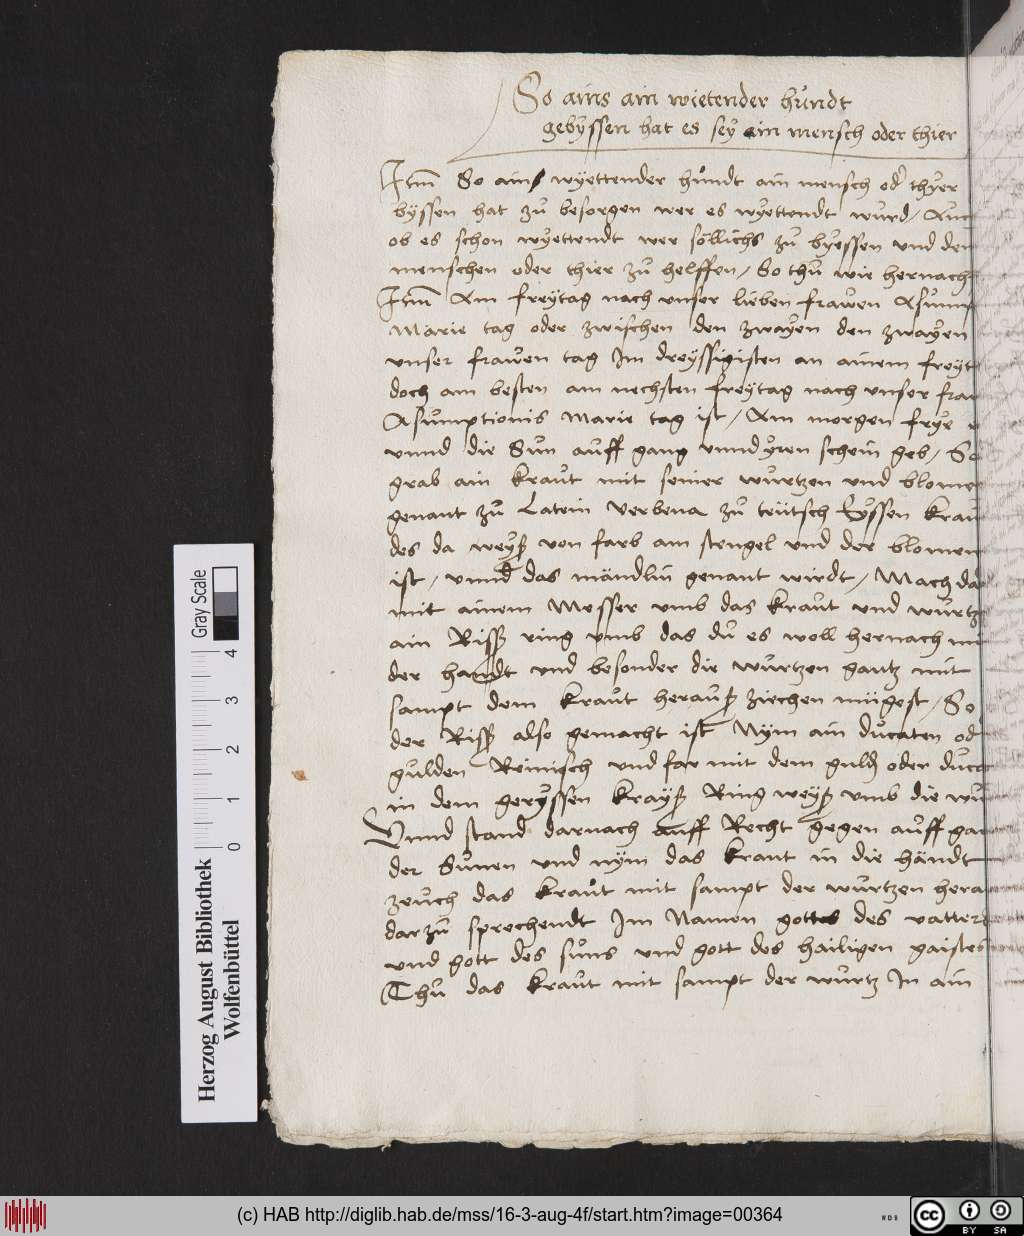 So ains ain wietender hundt
gebyssen hat es sey ein mensch oder thier
Itm So ains wyettender hůndt ain mensch od' thyer
byssen hat zů besorgen wer es wyettendt wurd, Auch
ob es schon wyettendt wer söllichs zů byessen und den
menschen oder thier zů helffen, So thů wie hernach
Itm Am freytag nach unser lieben frawen Asum
Marie tag oder zwischen den zwayen den zwayen
unser frawen tag Im dreyssigisten an ainem freyt
doch am besten am nechsten freytag nach unser fra
Asůmptionis Marie tag ist, Am morgen frye
unnd die Sůn auff gang unnd yren schein geb, So
grab ain kraut mit seiner wurtzen und blomen
genant zů Latein Verbena zů teütsch Eyssen krau
des da weyß von farb am stengel und der blomen
ist, unnd das mändlin genant wirdt, Mach da
mit ainem Messer umb das kraut und wurtz
ain Rissz ring umb das dů es woll hernach mi
der handt und besonder die wurtzen gantz mit
sampt dem kraut herauß ziechen mügest, So
der Rissz also gemacht ist Nym ain ducaten od
gulden Reinisch und far mit dem guld oder duca
in dem geryssen krayß Ring weyß umb die wu
Unnd stand darnach auff Recht gegen auff gan
der Sůnen und nym das kraut in die händt
zeuch das kraut mit sampt der wurtzen hera
darzů sprechendt Im Namen gottes des vatters
und gott des sůns und gott des hailigen gaistes
Thů das kraut mit sampt der wurtz In ain
Gray Scale
0 1 2 3 4
Herzog August Bibliothek
Wolfenbüttel
(c) HAB http://diglib.hab.de/mss/16-3-aug-4f/start.htm?image=00364
WDB
cc BY SA